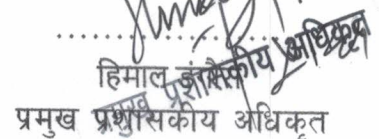 ....................
हिमाल
प्रमुख प्रशासकीय अधिकृत
प्रमुख प्रशासकीय अधिकृत